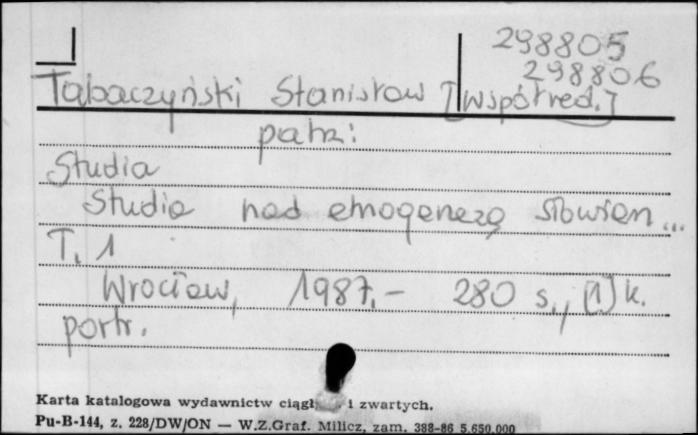 298805
298806
Tabaczyński Stanisław [współred.]
patrz:
Studia
Studia nad etnogenezą Słowian...
T. 1
Wrocław, 1987.- 280 s., [1] k.
portr.
Karta katalogowa wydawnictw ciągł i zwartych.
Pu-B-144, z. 228/DW/ON — W.Z.Graf. Milicz, zam. 388-86 5.650.000